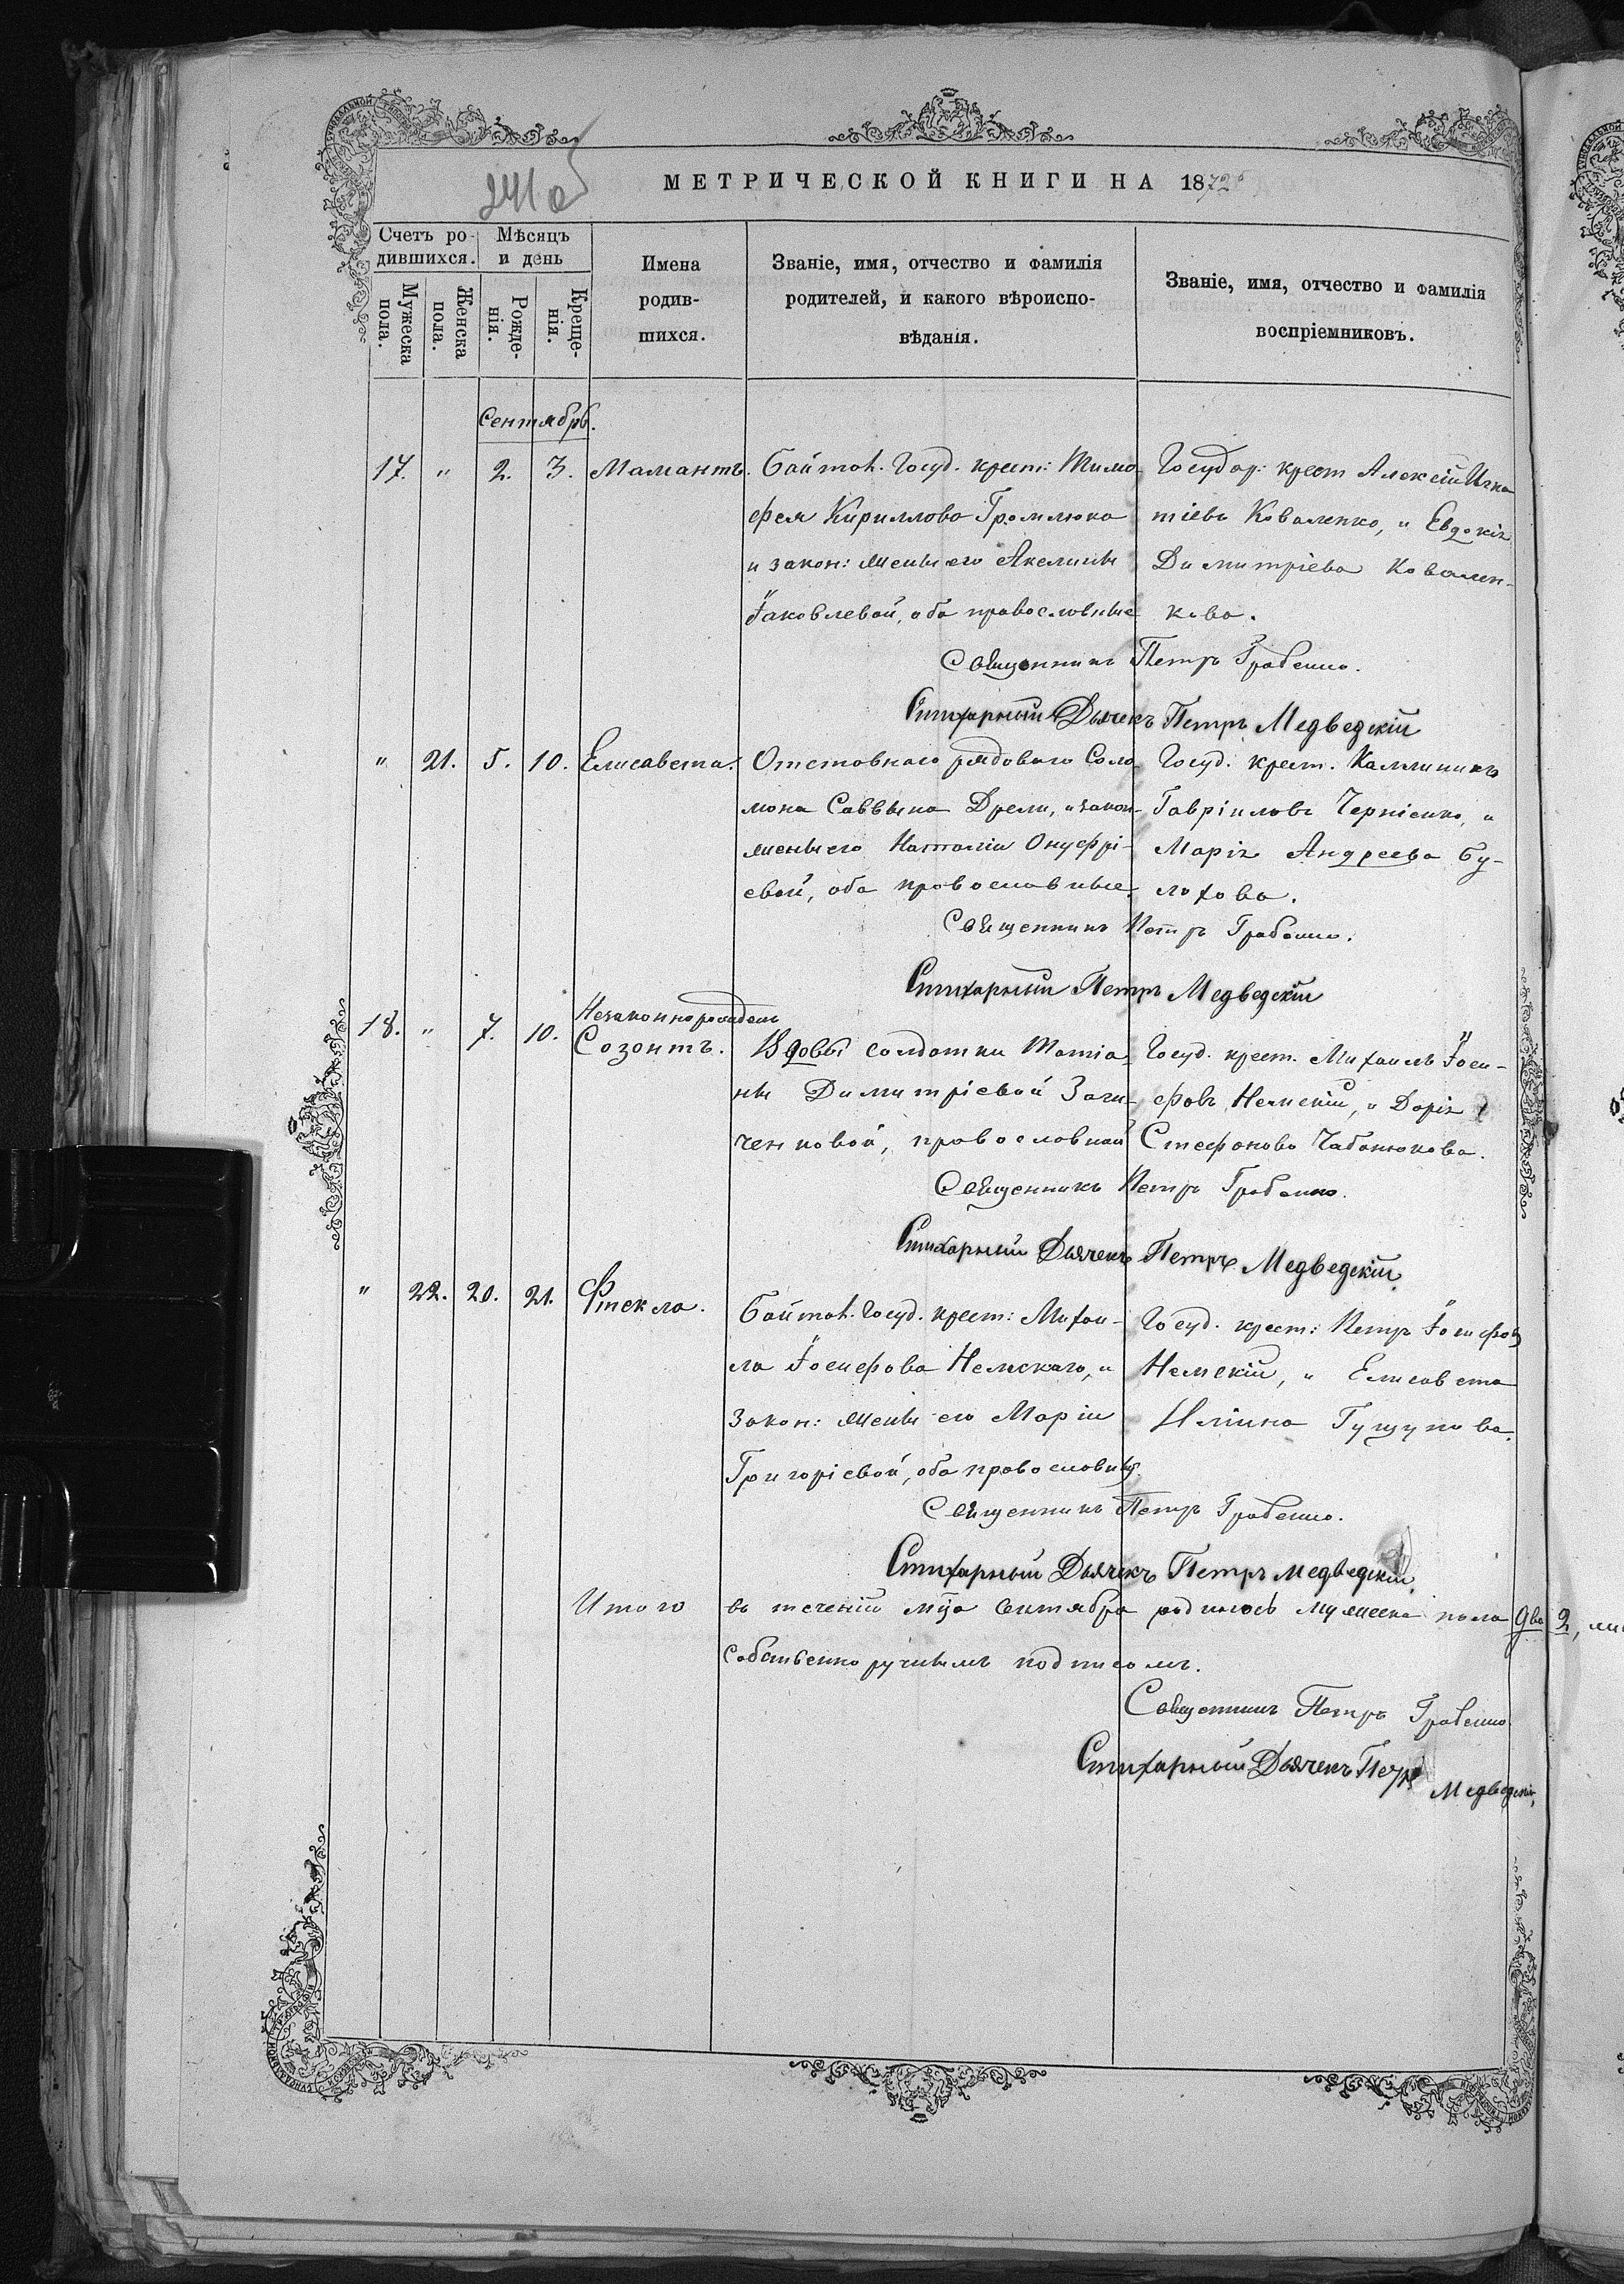 МЕТРИЧЕСКОЙ КНИГИ НА 1872
Счетъ ро-
дившихся.
Мѣсяцъ
и день
Мужеска
пола.
Женска
пола.
Рожде-
нія.
Креще-
нія.
Имена
родив-
шихся.
Званіе, имя, отчество и фамилія
родителей, и какого вѣроиспо-
вѣданія.
Званіе, имя, отчество и фамилія
воспріемниковъ.
Сентябрь.
17. " 2. 3. Мамантъ.
Госуд. крест: Тимо
фея Кириллова Громлюка
и закон: жены его Акелины
Іаковлевой, оба православные
Государ: крест Алексій Игна
тіевъ Коваленко, и Евдокія
Димитріева Ковален-
кова.
Священникъ Петръ
Стихарный Дьячекъ Петръ Медведскій
" 21. 5. 10. Елисавета.
Отставнаго рядоваго Соло
мона Саввына Дрели, и закон-
жены его Наталіи Онуфрі-
евой, оба православные.
Госуд. крест. Каллиникъ
Гавріиловъ Чернієнко, и
Марія Андреева Бу-
лохова.
Священникъ Петръ
Стихарный Петръ Медведскій
18. " 7. 10. Незаконнорожден
Созонтъ.
Вдовы солдатки Татіа
ны Димитріевой Заги-
ченковой, православной
Госуд. крест. Михаилъ Іоси-
фовъ Немскій, и Дарія
Стефанова Чабанюкова.
Священникъ Петръ
Стихарный Дьячекъ Петръ Медведскій.
" 22. 20. 21. Фтекла.
Госуд. крест: Михаи-
ла Іосифова Немскаго, и
закон: жены его Маріи
Григоріевой, оба православныя.
Госуд. крест: Петръ Іосифовъ
Немскій, и Елисавета
Иліина Гущупова.
Священникъ Петръ
Стихарный Дьячекъ Петръ Медведскій.
Итого въ теченіи мца Сентября родилось мужеска пола два 2,
собственноручнымъ подписомъ.
Священникъ Петръ
Стихарный Дьячекъ Петръ
Медведскій,